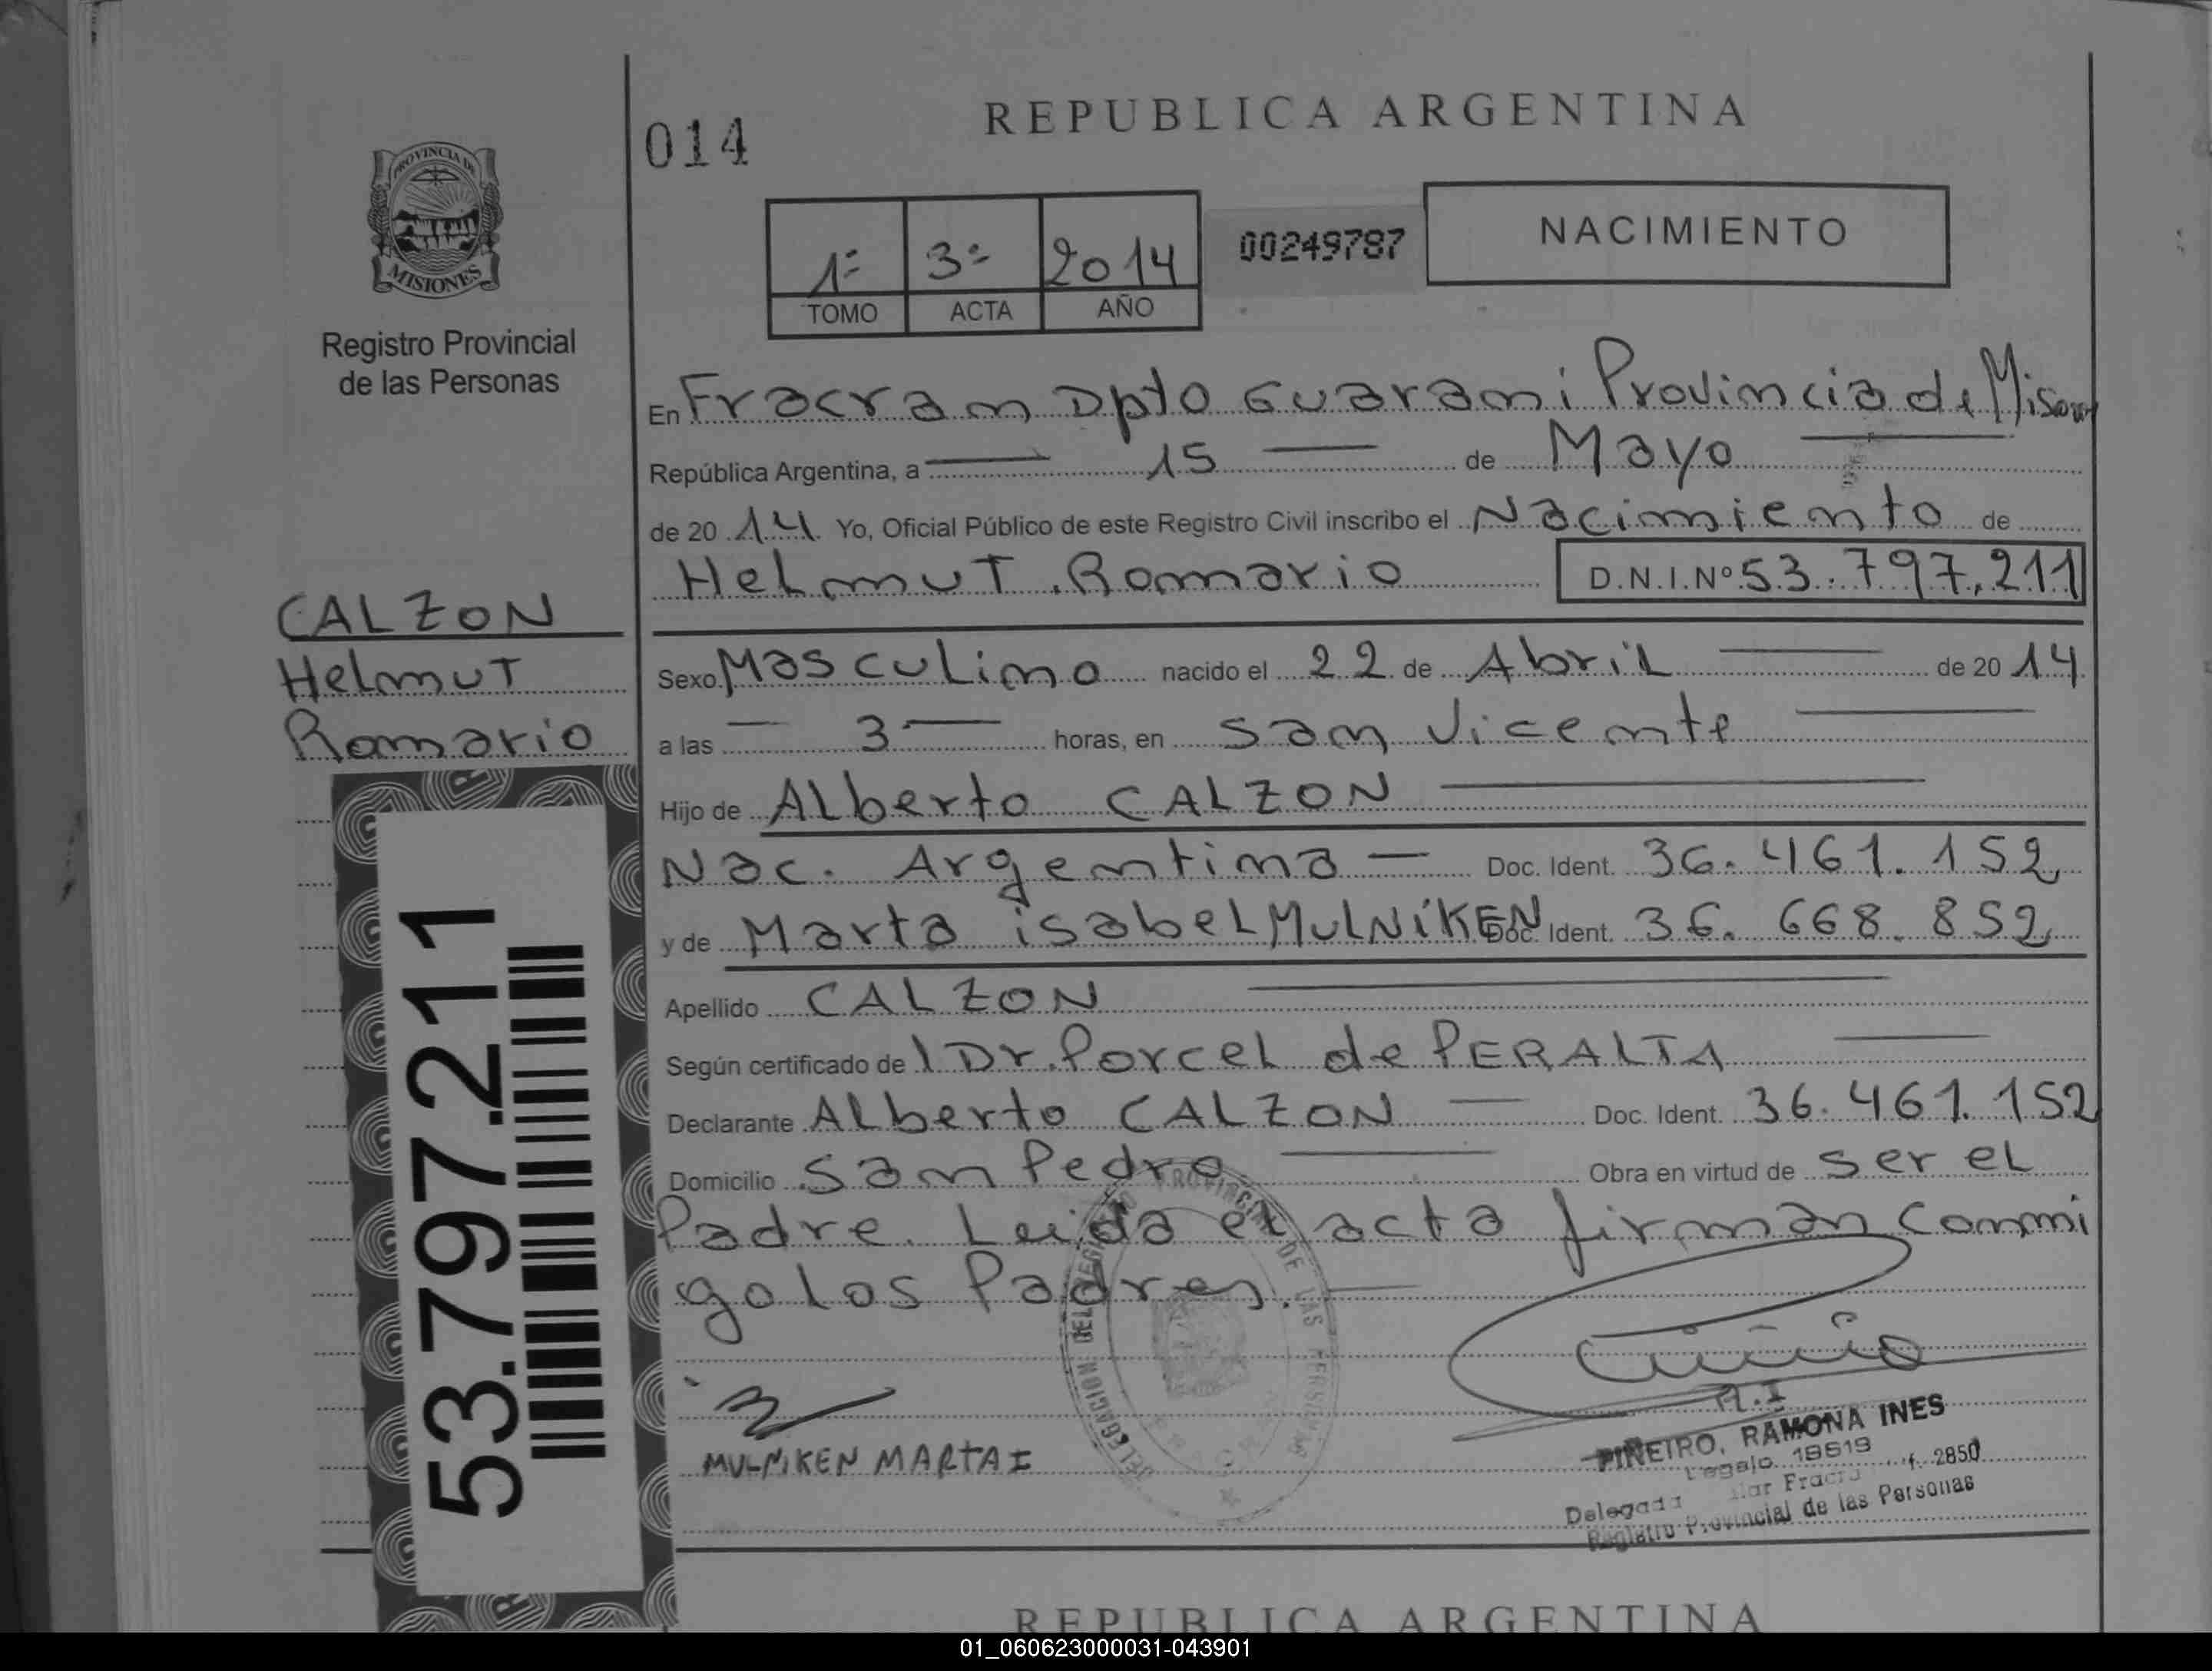 REPUBLICA ARGENTINA
014
PROVINCIA DE
MISIONES
Registro Provincial
de las Personas
1º 3º 2014
TOMO ACTA AÑO
00249787
NACIMIENTO
En Fracram Dpto Guarami Provincia de
República Argentina, a 15 de Mayo
de 2014 Yo, Oficial Público de este Registro Civil inscribo el Nacimiento de
Helmut Romario D.N.I.Nº 53.797.211
CALZON
Helmut
Romario
Sexo Masculino nacido el 22 de Abril de 2014
a las 3 horas, en San Vicente
Hijo de Alberto CALZON
Nac. Argentina Doc. Ident. 36.461.152
y de Marta isabel MULNIKEN Doc. Ident. 36.668.852
Apellido CALZON
Según certificado de l Dr. Porcel de PERALTA
Declarante Alberto CALZON Doc. Ident. 36.461.152
Domicilio San Pedro Obra en virtud de ser el
Padre. Leida el acta firman conmi
go los Padres.
53.797.211
MULNIKEN MARTA I
PIÑEIRO, RAMONA INES
Legajo 19619
f. 2850
Registro Provincial de las Personas
REPUBLICA ARGENTINA
01_060623000031-043901